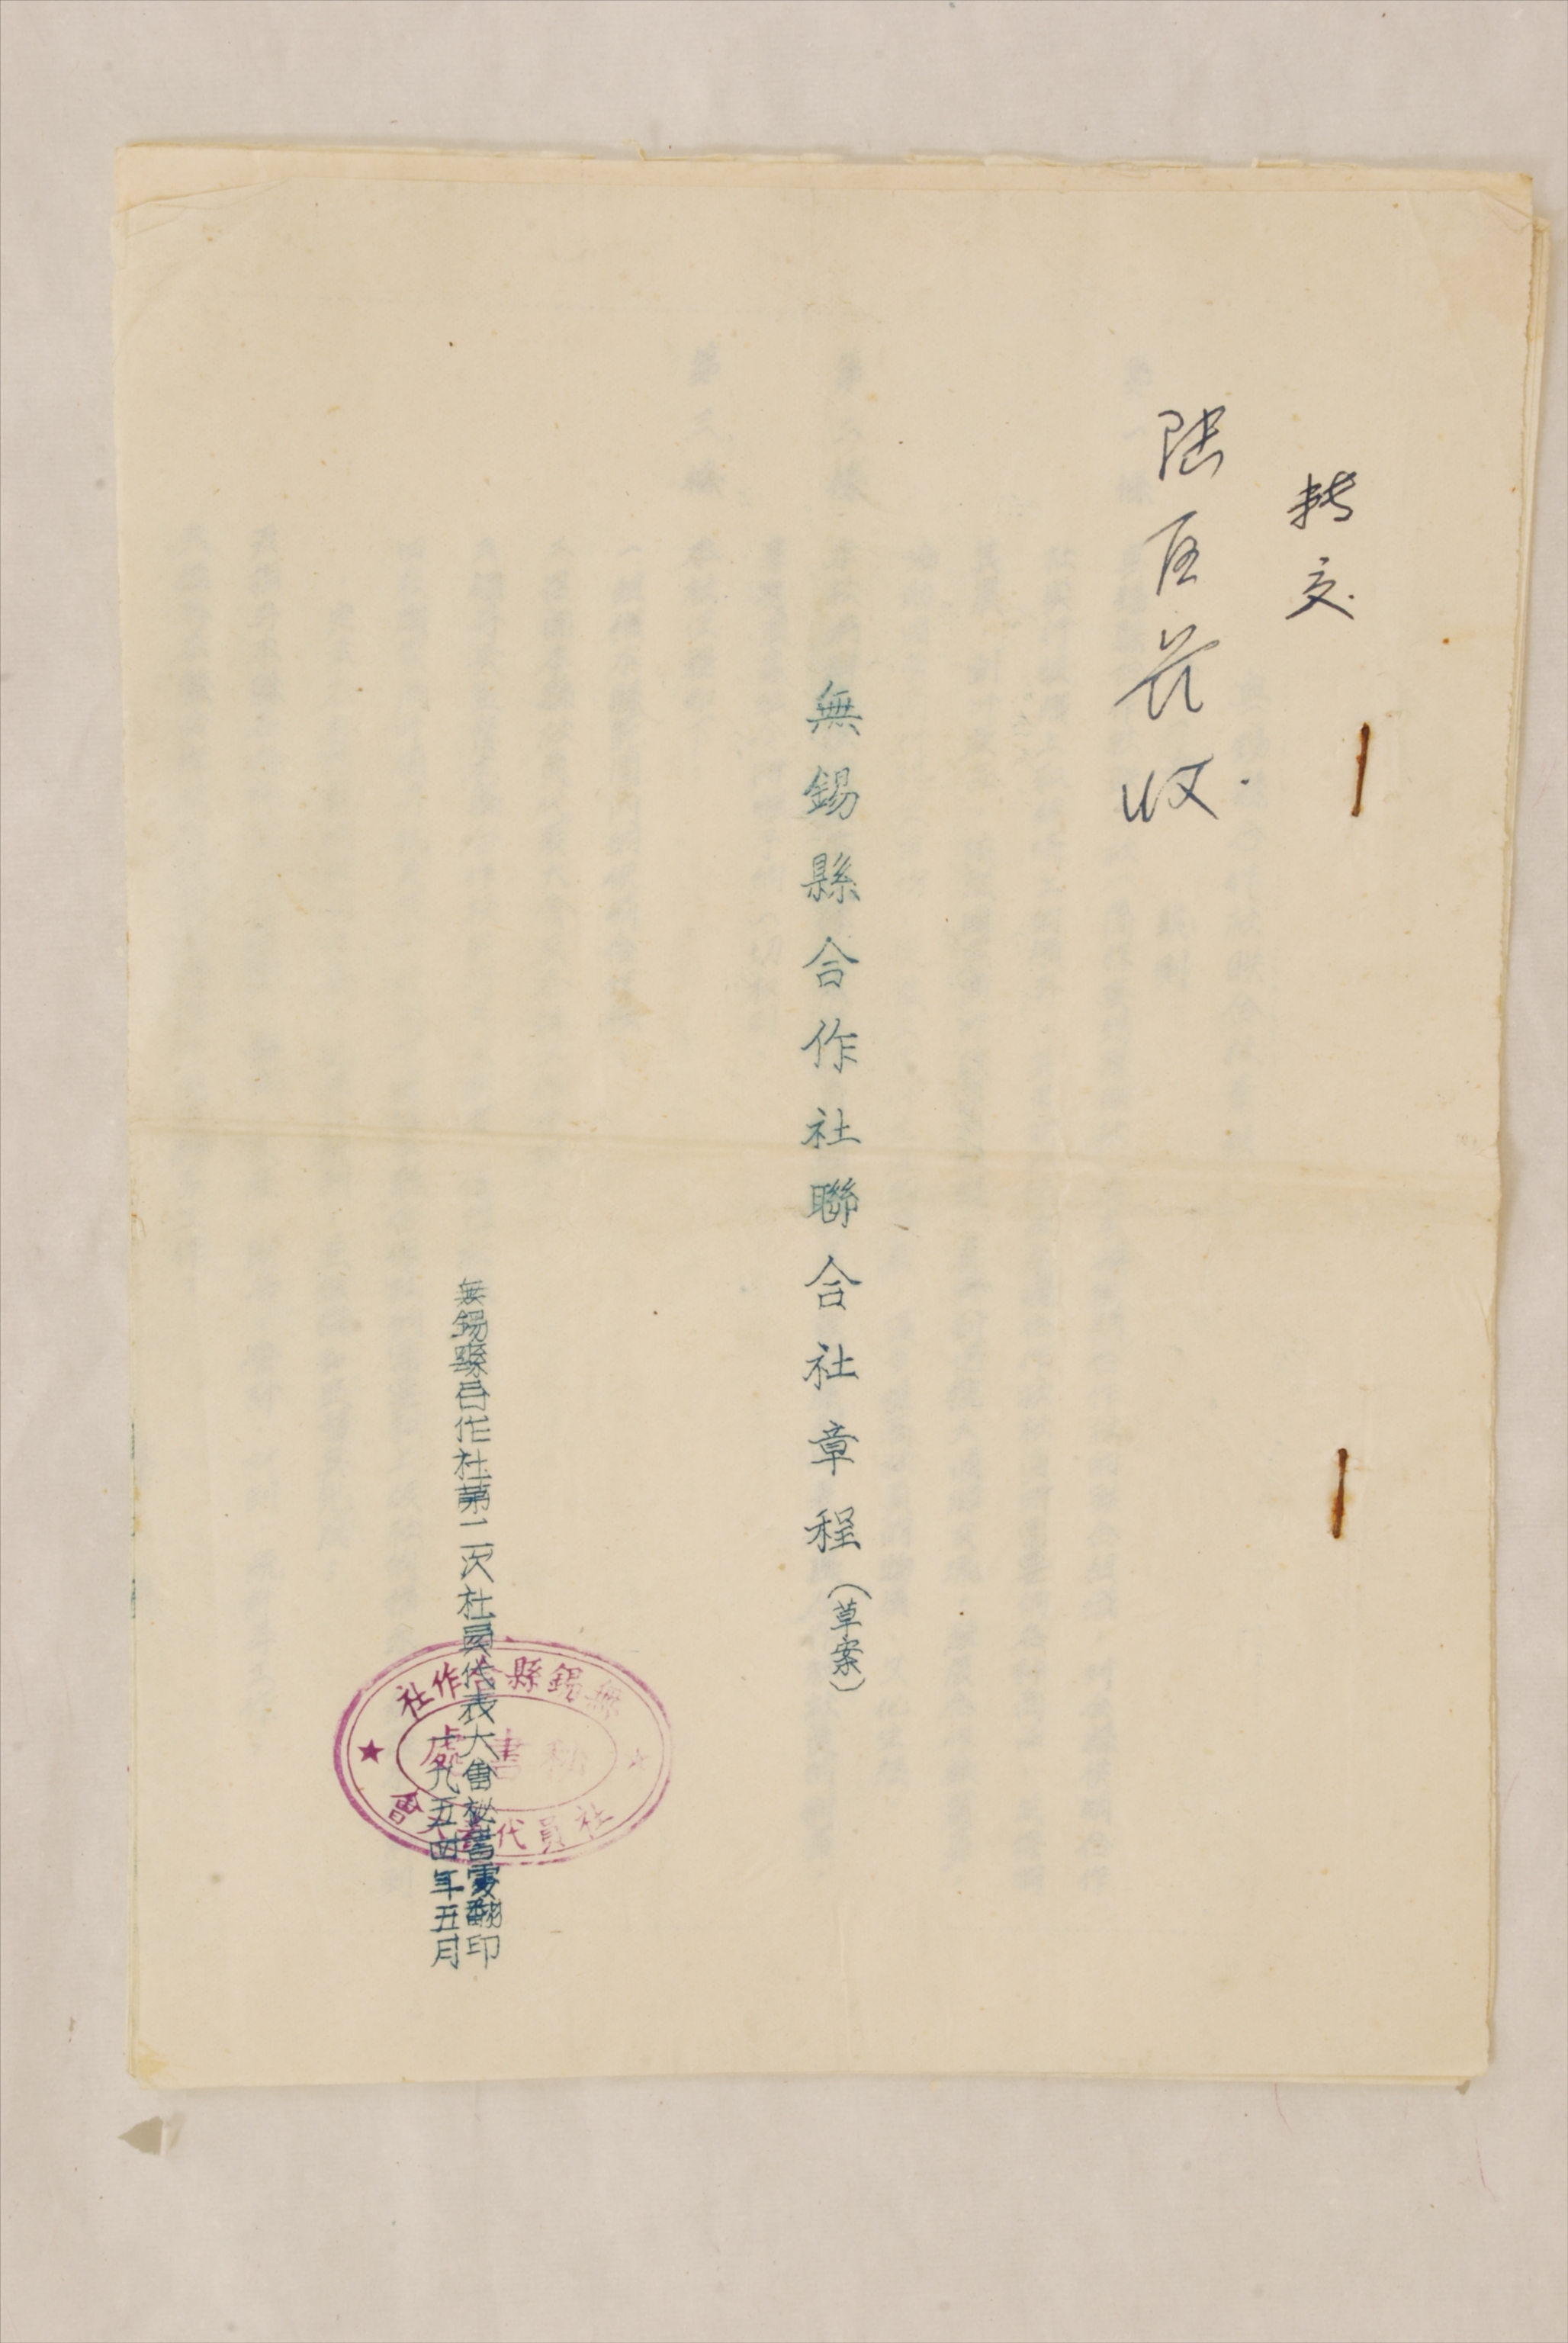 转交
陆
收
無錫縣合作社聯合社章程（草案）
無錫縣合作社第二次社員代表大會祕書處翻印
一九五四年五月
無錫縣合作社
社員代表大會
秘書處